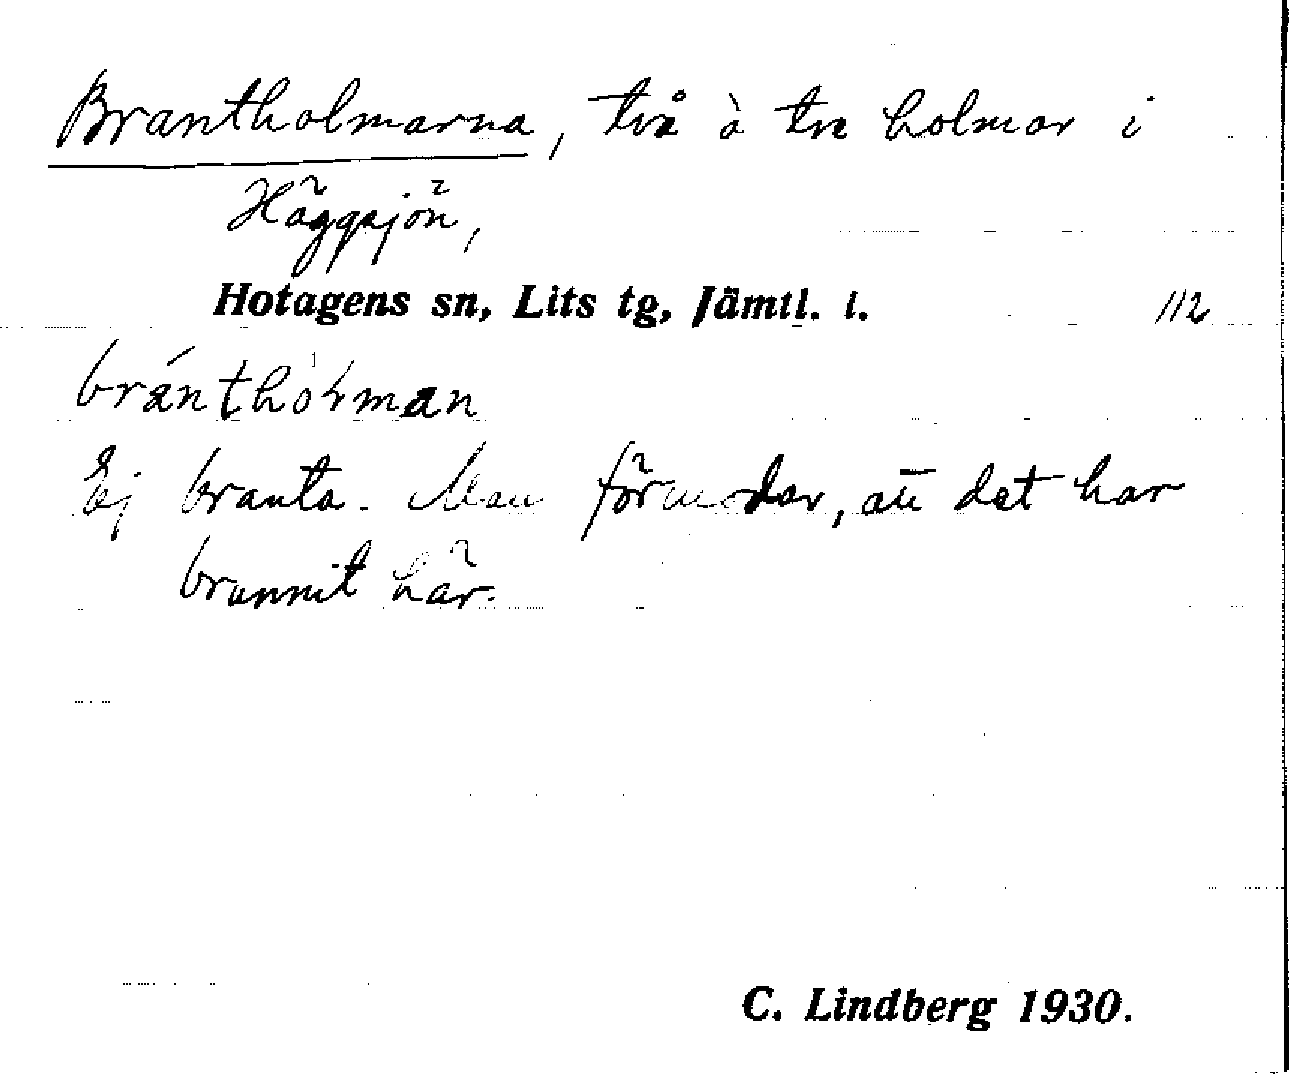 Brantholmarna, två à tre holmar i
Häggsjön,
Hotagens sn, Lits tg, Jämtl. l. 112
Ej branta. Man förmodar, att det har
brunnit här.
C. Lindberg 1930.